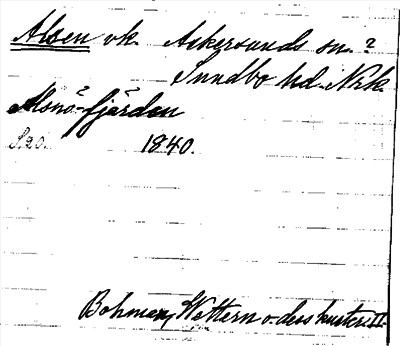 Alsen vk. Askersunds sn.?
Sundbo hd. Nrk.
Alsnö-fjärden
S. 20. 1840.
Bohman, Wettern o. dess kuster. II.